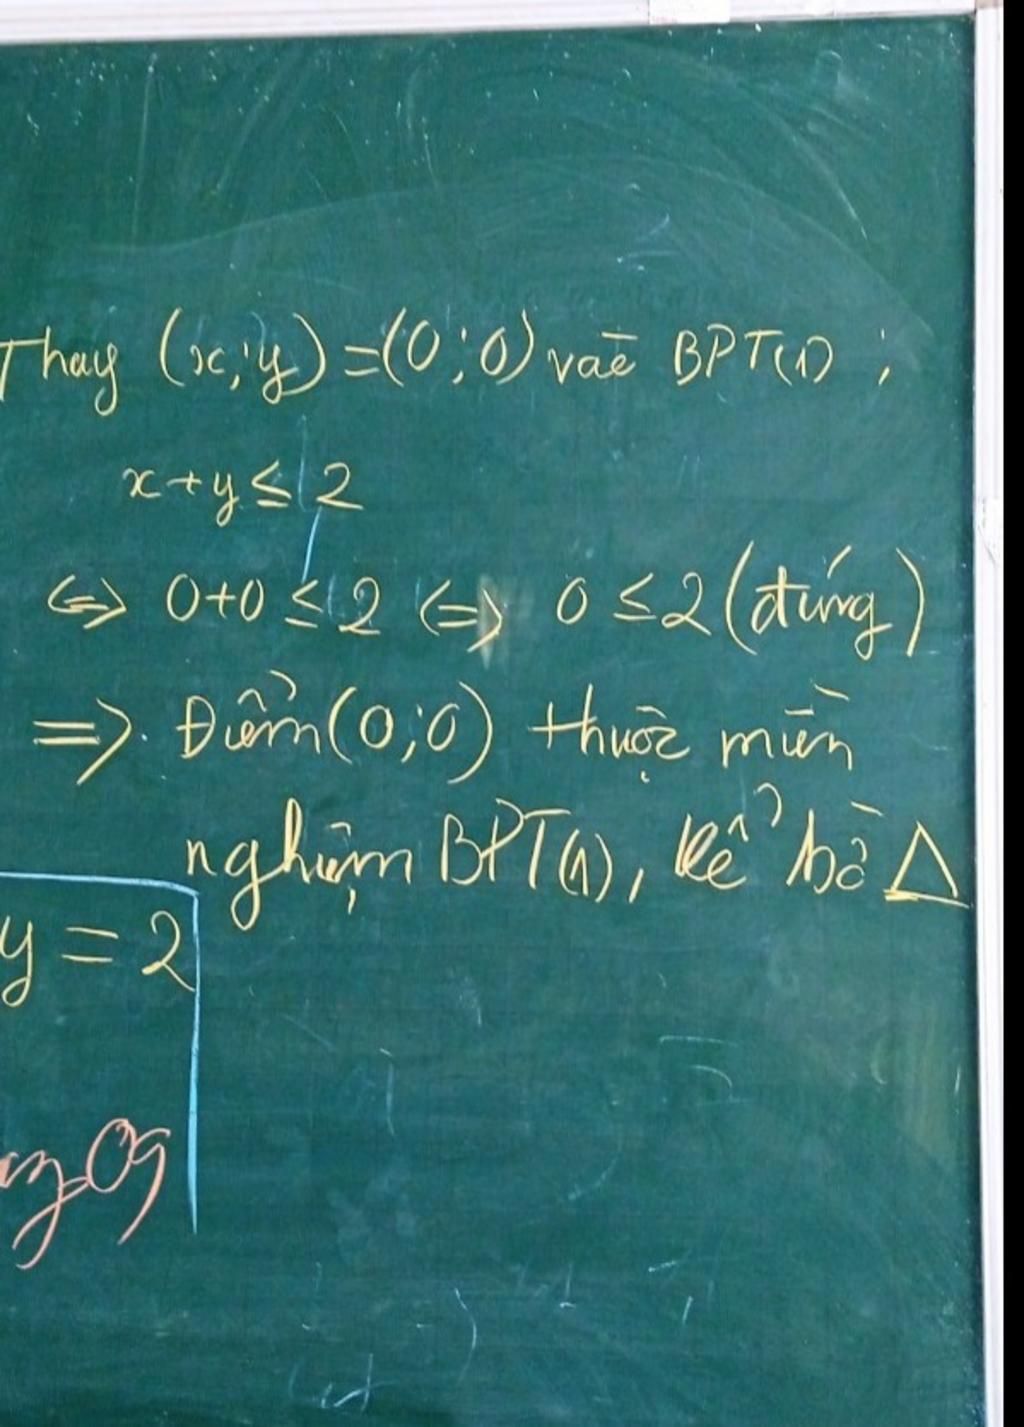 Thay (x;y)=(0;0) vào BPT(1);
x+y≤2
⇔ 0+0≤2 ⇔ 0≤2 (đúng)
⇒ Điểm(0;0) thuộc miền
nghiệm BPT(1), kể bờ Δ
y=2
Oy